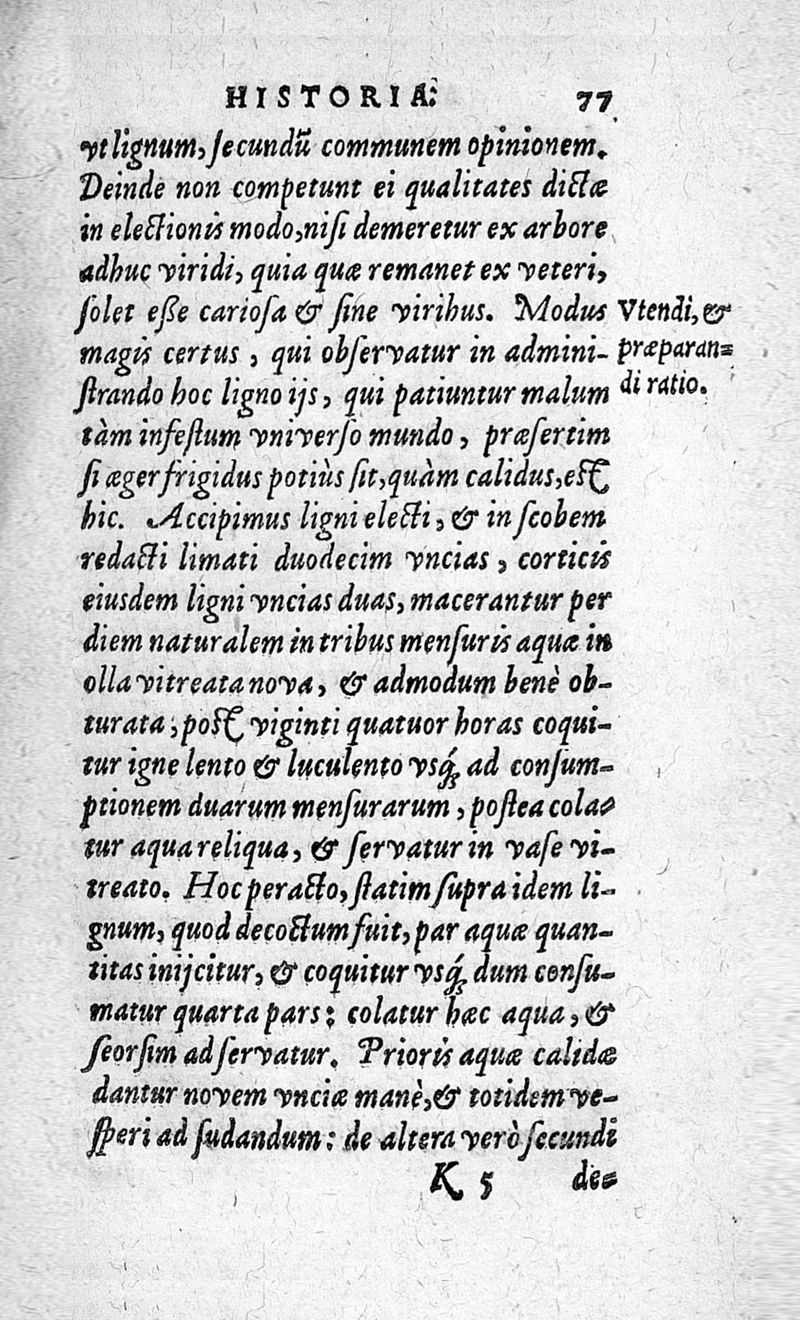 HISTORIÆ. 77
vt lignum, ſecundũ communem opinionem.
Deinde non competunt ei qualitates dictæ
in electionis modo, niſi demeretur ex arbore
adhuc viridi, quia quæ remanet ex veteri,
ſolet eſſe carioſa & ſine viribus. Modus
magis certus, qui obſervatur in admini-
ſtrando hoc ligno ijs, qui patiuntur malum
tàm infeſtum vniverſo mundo, præſertim
ſi æger frigidus potiùs ſit, quàm calidus, eſt
hic. Accipimus ligni electi, & in ſcobem
redacti limati duodecim vncias, corticis
eiusdem ligni vncias duas, macerantur per
diem naturalem in tribus menſuris aquæ in
olla vitreata nova, & admodum benè ob-
turata, poſt viginti quatuor horas coqui-
tur igne lento & luculento vsq́; ad conſum-
ptionem duarum menſurarum, poſtea cola-
tur aqua reliqua, & ſervatur in vaſe vi-
treato. Hoc peracto, ſtatim ſupra idem li-
gnum, quod decoctum fuit, par aquæ quan-
titas inijcitur, & coquitur vsq́; dum conſu-
matur quarta pars: colatur hæc aqua, &
ſeorſim adſervatur. Prioris aquæ calidæ
dantur novem vnciæ manè, & totidem ve-
ſperi ad ſudandum: de altera verò ſecundi
K 5 de-
Vtendi, &
præparan-
di ratio.